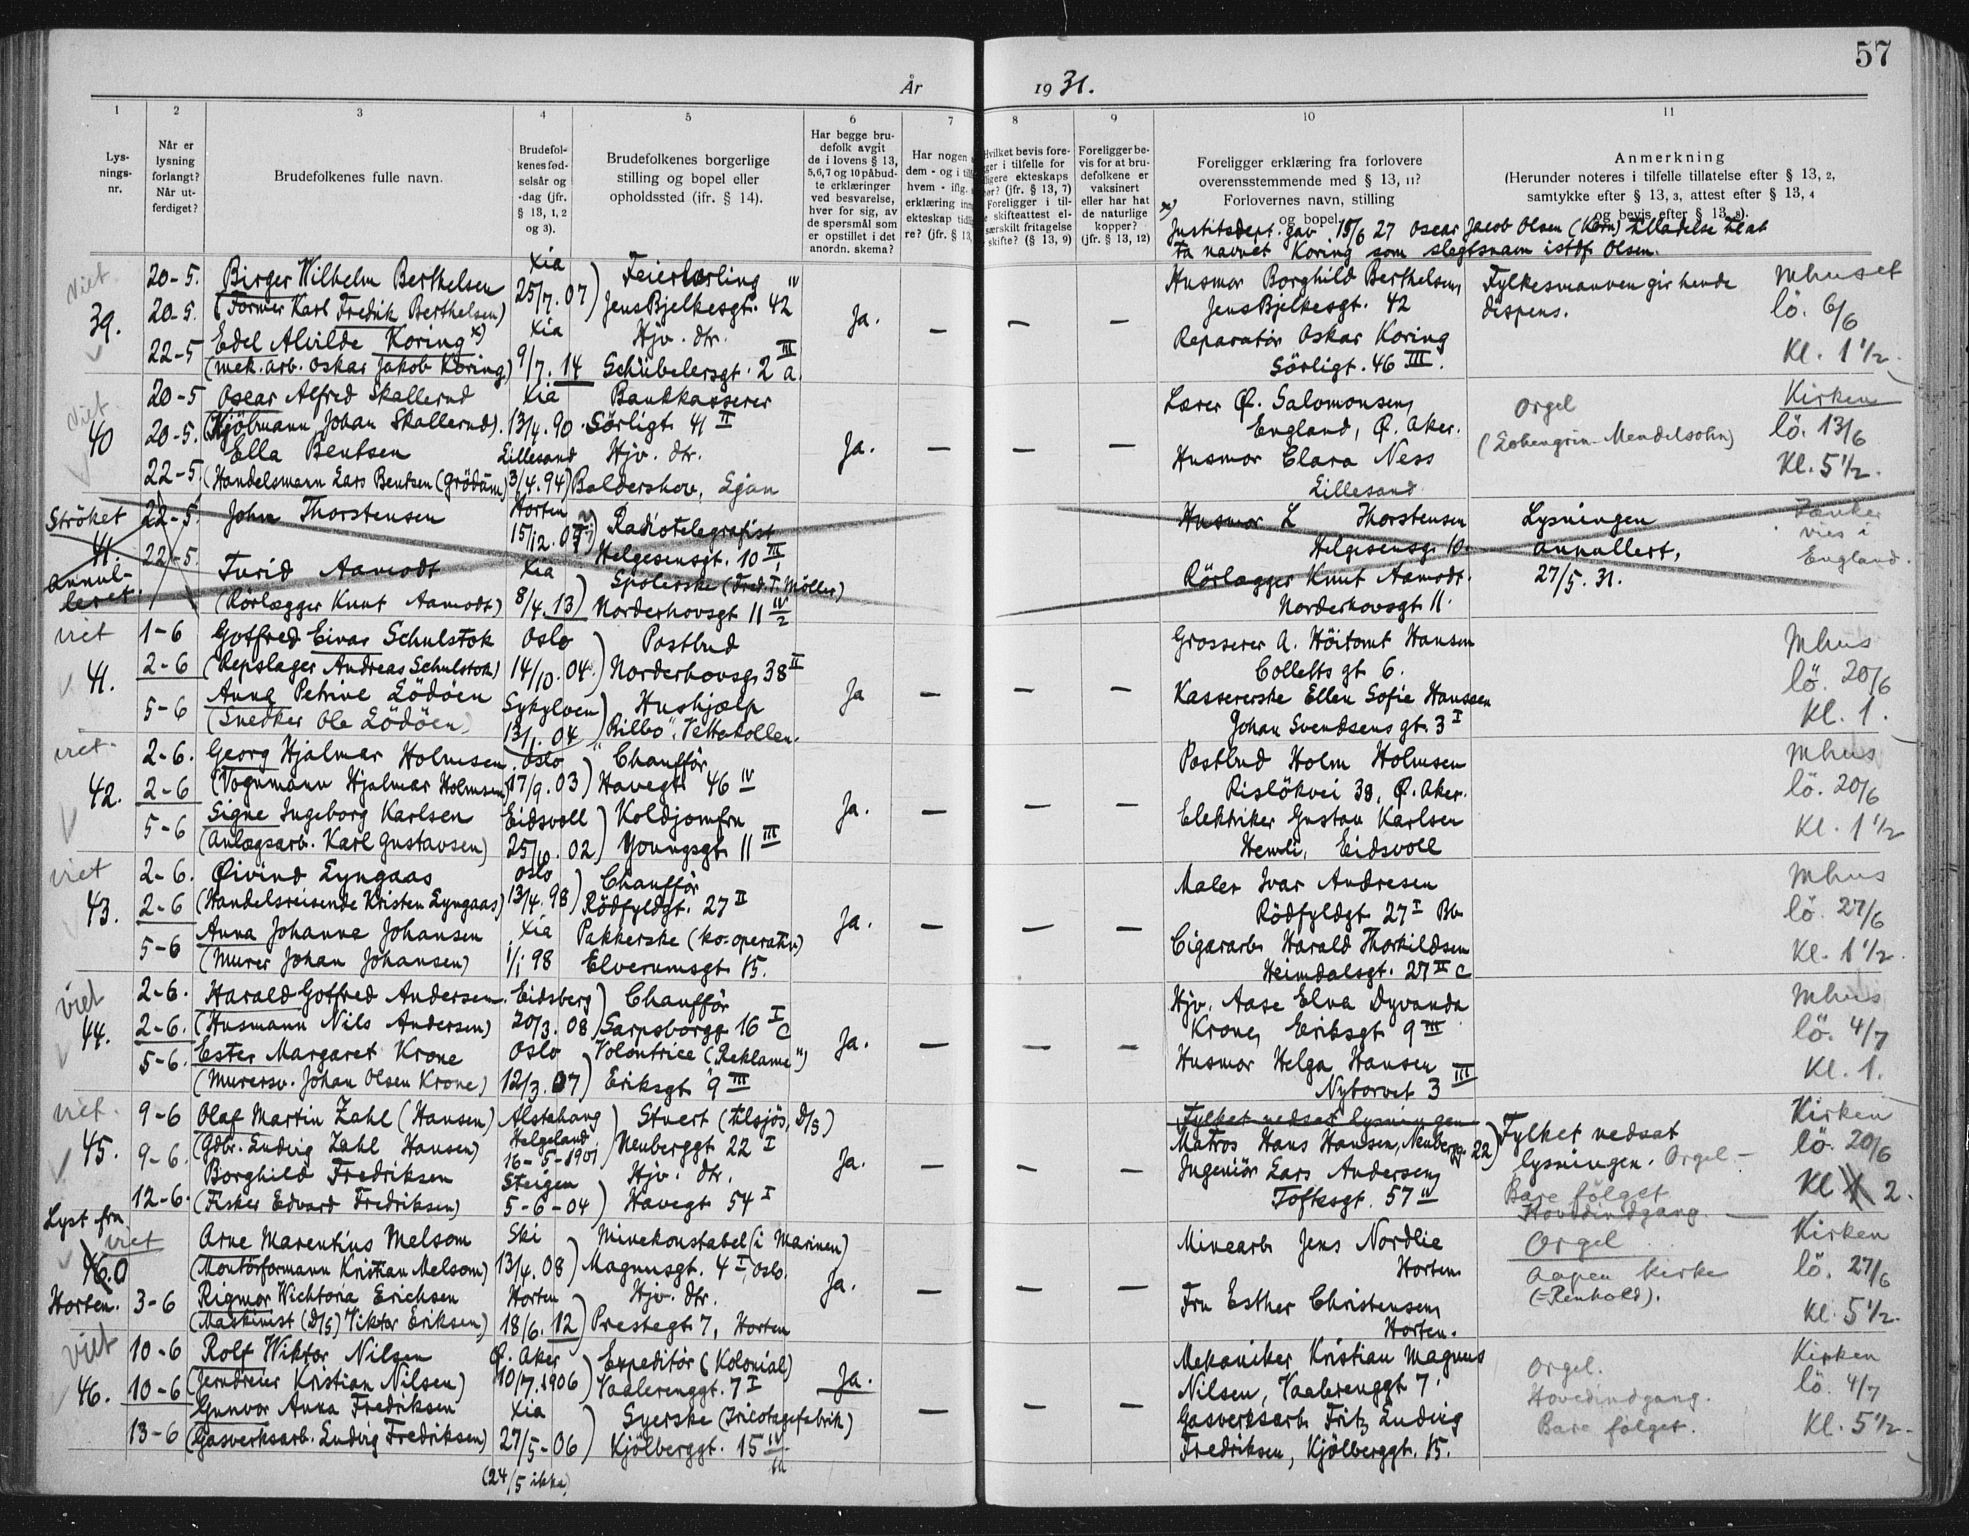 57
År 1931.
1
2
3
4
5
6
7
8
9
10
11
Lys-
nings-
nr.
Når er
lysning
forlangt?
Når ut-
ferdiget?
Brudefolkenes fulle navn.
Brudefol-
kenes fød-
selsår og
-dag (jfr.
§ 13, 1, 2
og 3).
Brudefolkenes borgerlige
stilling og bopel eller
opholdssted (ifr. § 14).
Har begge bru-
defolk avgit
de i lovens § 13,
5,6,7 og 10 påbud-
te erklæringer
ved besvarelse,
hver for sig, av
de spørsmål som
er opstillet i det
anordn. skema?
Har nogen
dem - og i
hvem - iflg.
erklæring
ekteskap
re? (jfr. § 13,
Hvilket bevis fore-
i tilfelle for
ekteskaps
(jfr. § 13, 7)
Foreligger i til-
skifteattest el-
særskilt fritagelse
skifte? (§ 13, 9)
Foreligger be-
vis for at bru-
defolkene er
vaksinert
eller har hat
de naturlige
kopper?
(jfr. § 13, 12)
Foreligger erklæring fra forlovere
overensstemmende med § 13, 11?
Forlovernes navn, stilling
og bopel.
Anmerkning
(Herunder noteres i tilfelle tillatelse efter § 13, 2,
samtykke efter § 13, 3, attest efter § 13, 4
og bevis efter § 13, 8).
x) Justitsdept. gav 15/6 27 Oscar Jacob Olsen (Barn) tilladelse til at
ta navnet Koring som slegtsnavn istdf. Olsen.
Viet
39.
20-5.
20-5.
22-5
Birger Wilhelm Berthelsen
(Former Karl Fredrik Berthelsen)
Edel Alvilde Koring x)
(mek. arb. Oskar Jakob Koring)
Xia
25/7. 07)
Xia
9/7. 14
Feierlærling
Jens Bjelkesgt. 42 IV
Hjv. dtr.
Schübelersgt. 2 a. III
Ja. — — —
Husmor Borghild Berthelsen,
Jens Bjelkesgt. 42
Reparatør Oskar Koring
Sörligt. 46 III.
Fylkesmannen gir hende
dispens.
Mhuset
lö. 6/6
Kl. 1 1/2
Viet
40
20-5
20-5.
22-5
Oscar Alfred Skallerud
(Kjöbmann Johan Skallerud).
Ella Bentsen
(Handelsmann Lars Bentsen (Grödum)
Xia
13/4. 90.
Lillesand
3/4. 94)
Bankkasserer
Sörligt. 41 II
Hjv. dtr.
Baldershov, Ljan
Ja. — — —
Lærer Ø. Salomonsen,
England, Ø. Aker.
Husmor Clara Ness
Lillesand
Orgel
(Lohengrin-Mendelsohn)
Kirken
lö. 13/6
Kl. 5 1/2.
Ströket
41.
annul-
leret.
22-5.
22-5.
John Thorstensen
Turid Aamodt
(Rörlægger Knut Aamodt)
Horten
15/12. 07
Xia
8/4. 13)
Radiotelegrafist
Helgesensgt. 10 III
Spolerske (Fred. T. Möller)
Norderhovsgt 11 IV/2
Husmor L Thorstensen
Helgesensg. 10.
Rörlægger Knut Aamodt.
Norderhovsgt 11.
Lysningen
annullert,
27/5. 31.
Tænker
vies i
England.
viet
41.
1-6
2-6
5-6
Gotfred Einar Schulstok
(Repslager Andreas Schulstok)
Anna Petrine Lödöen
(Snedker Ole Lödöen)
Oslo
14/10. 04.)
Sykylven)
13/1. 04
Postbud
Norderhovsg. 38 II
Hushjælp
"Bilbo", Vettakollen.
Ja — — —
Grosserer A. Höitomt Hansen
Colletts gt 6.
Kassererske Ellen Sofie Hanssen
Johan Svendsens gt. 3 I
Mhus
lö. 20/6
Kl. 1.
viet.
42.
2-6.
2-6
5-6
Georg Hjalmar Holmsen
(Vognmann Hjalmar Holmsen)
Signe Ingeborg Karlsen
(Anlægsarb. Karl Gustavsen)
Oslo
17/9. 03)
Eidsvoll)
25/6. 02)
Chaufför
Havegt. 46 IV
Koldjomfru
Youngsgt. 11 III
Ja. — — —
Postbud Holm Holmsen
Rislökvei 38, Ø. Aker.
Elektriker Gustav Karlsen
Hemli, Eidsvoll
Mhus
lö. 20/6
Kl. 1 1/2
viet
43.
2-6.
2-6
5-6
Øivind Lyngaas
(Handelsreisende Kristen Lyngaas)
Anna Johanne Johansen
(Murer Johan Johansen)
Oslo
13/4. 98)
Xia
1/1 98
Chaufför
Rödfyldgt. 27 II
Pakkerske (ko-operativ)
Elverumsgt. 15.
Ja. — — —
Maler Ivar Andresen
Rödfyldgt 27 I Bb
Cigararb. Harald Thorkildsen
Heimdalsgt. 27 II c
Mhus
lö. 27/6
Kl. 1 1/2.
viet
44.
2-6.
2-6.
5-6.
Harald Gotfred Andersen.
(Husmann Nils Andersen)
Ester Margaret Krone
(Murersv. Johan Olsen Krone)
Eidsberg)
20/3. 08)
Oslo
12/3. 07)
Chaufför
Sarpsborggt 16 I c
Volontrice ("Reklame")
Eriksgt 9 III
Ja. — — —
Hjv. Aase Elna Dyvanda
Krone, Eriksgt 9 III
Husmor Helga Hansen
Nytorvet 3 III
Mhus
lö. 4/7
Kl. 1.
viet.
45.
9-6
9-6.
12-6.
Olaf Martin Zahl (Hansen)
(Gdbr. Ludvig Zahl Hansen)
Borghild Fredriksen
(Fisker Edvard Fredriksen)
Alstahaug)
Helgeland
16-5-1901
Steigen
5-6-04)
Stuert (tilsjös, D/S)
Neuberggt 22 I
Hjv. dtr.
Havegt 54 I
Ja. — — —
Fylket nedsat lysningen
Matros Hans Hansen, Neubergg. 22)
Ingeniör Lars Andersen,
Toftesgt. 57 IV
Fylket nedsat
lysningen. Orgel —
Bare fölget
Hovedindgang. —
Kirken
lö. 20/6
Kl 2.
Lyst fra
viet
46.0
Horten.
3-6
Arne Marentius Melsom
(Montörformann Kristian Melsom)
Rigmor Wichtoria Erichsen
(Maskinist (D/S) Viktor Eriksen)
Ski
13/4. 08)
Horten
18/6. 12)
Minekonstabel (i Marinen)
Magnusgt. 4 I, Oslo.
Hjv. dtr.
Prestegt 7, Horten
Ja. — — —
Minearb. Jens Nordlie
Horten
Fru Esther Christensen,
Horten.
Orgel
Aapen kirke
(=Renhold).
Kirken
lö. 27/6
Kl. 5 1/2.
viet
46.
10-6
10-6
13-6
Rolf Wiktor Nilsen
(Jerndreier Kristian Nilsen)
Gunvor Anna Fredriksen
(Gasverksarb. Ludvig Fredriksen)
Ø. Aker
10/7. 1906)
Xia
27/5-06)
(24/5 ikke)
Expeditör (Kolonial)
Vaalerenggt. 7 I
Syerske (Tricotagefabrik)
Kjölberggt. 15 IV
Ja. — — —
Mekaniker Kristian Magnus
Nilsen, Vaalerenggt 7.
Gasverksarb. Fritz Ludvig
Fredriksen, Kjölberggt. 15.
Orgel.
Hovedindgang.
Bare fölget.
Kirken
lö. 4/7
Kl. 5 1/2.